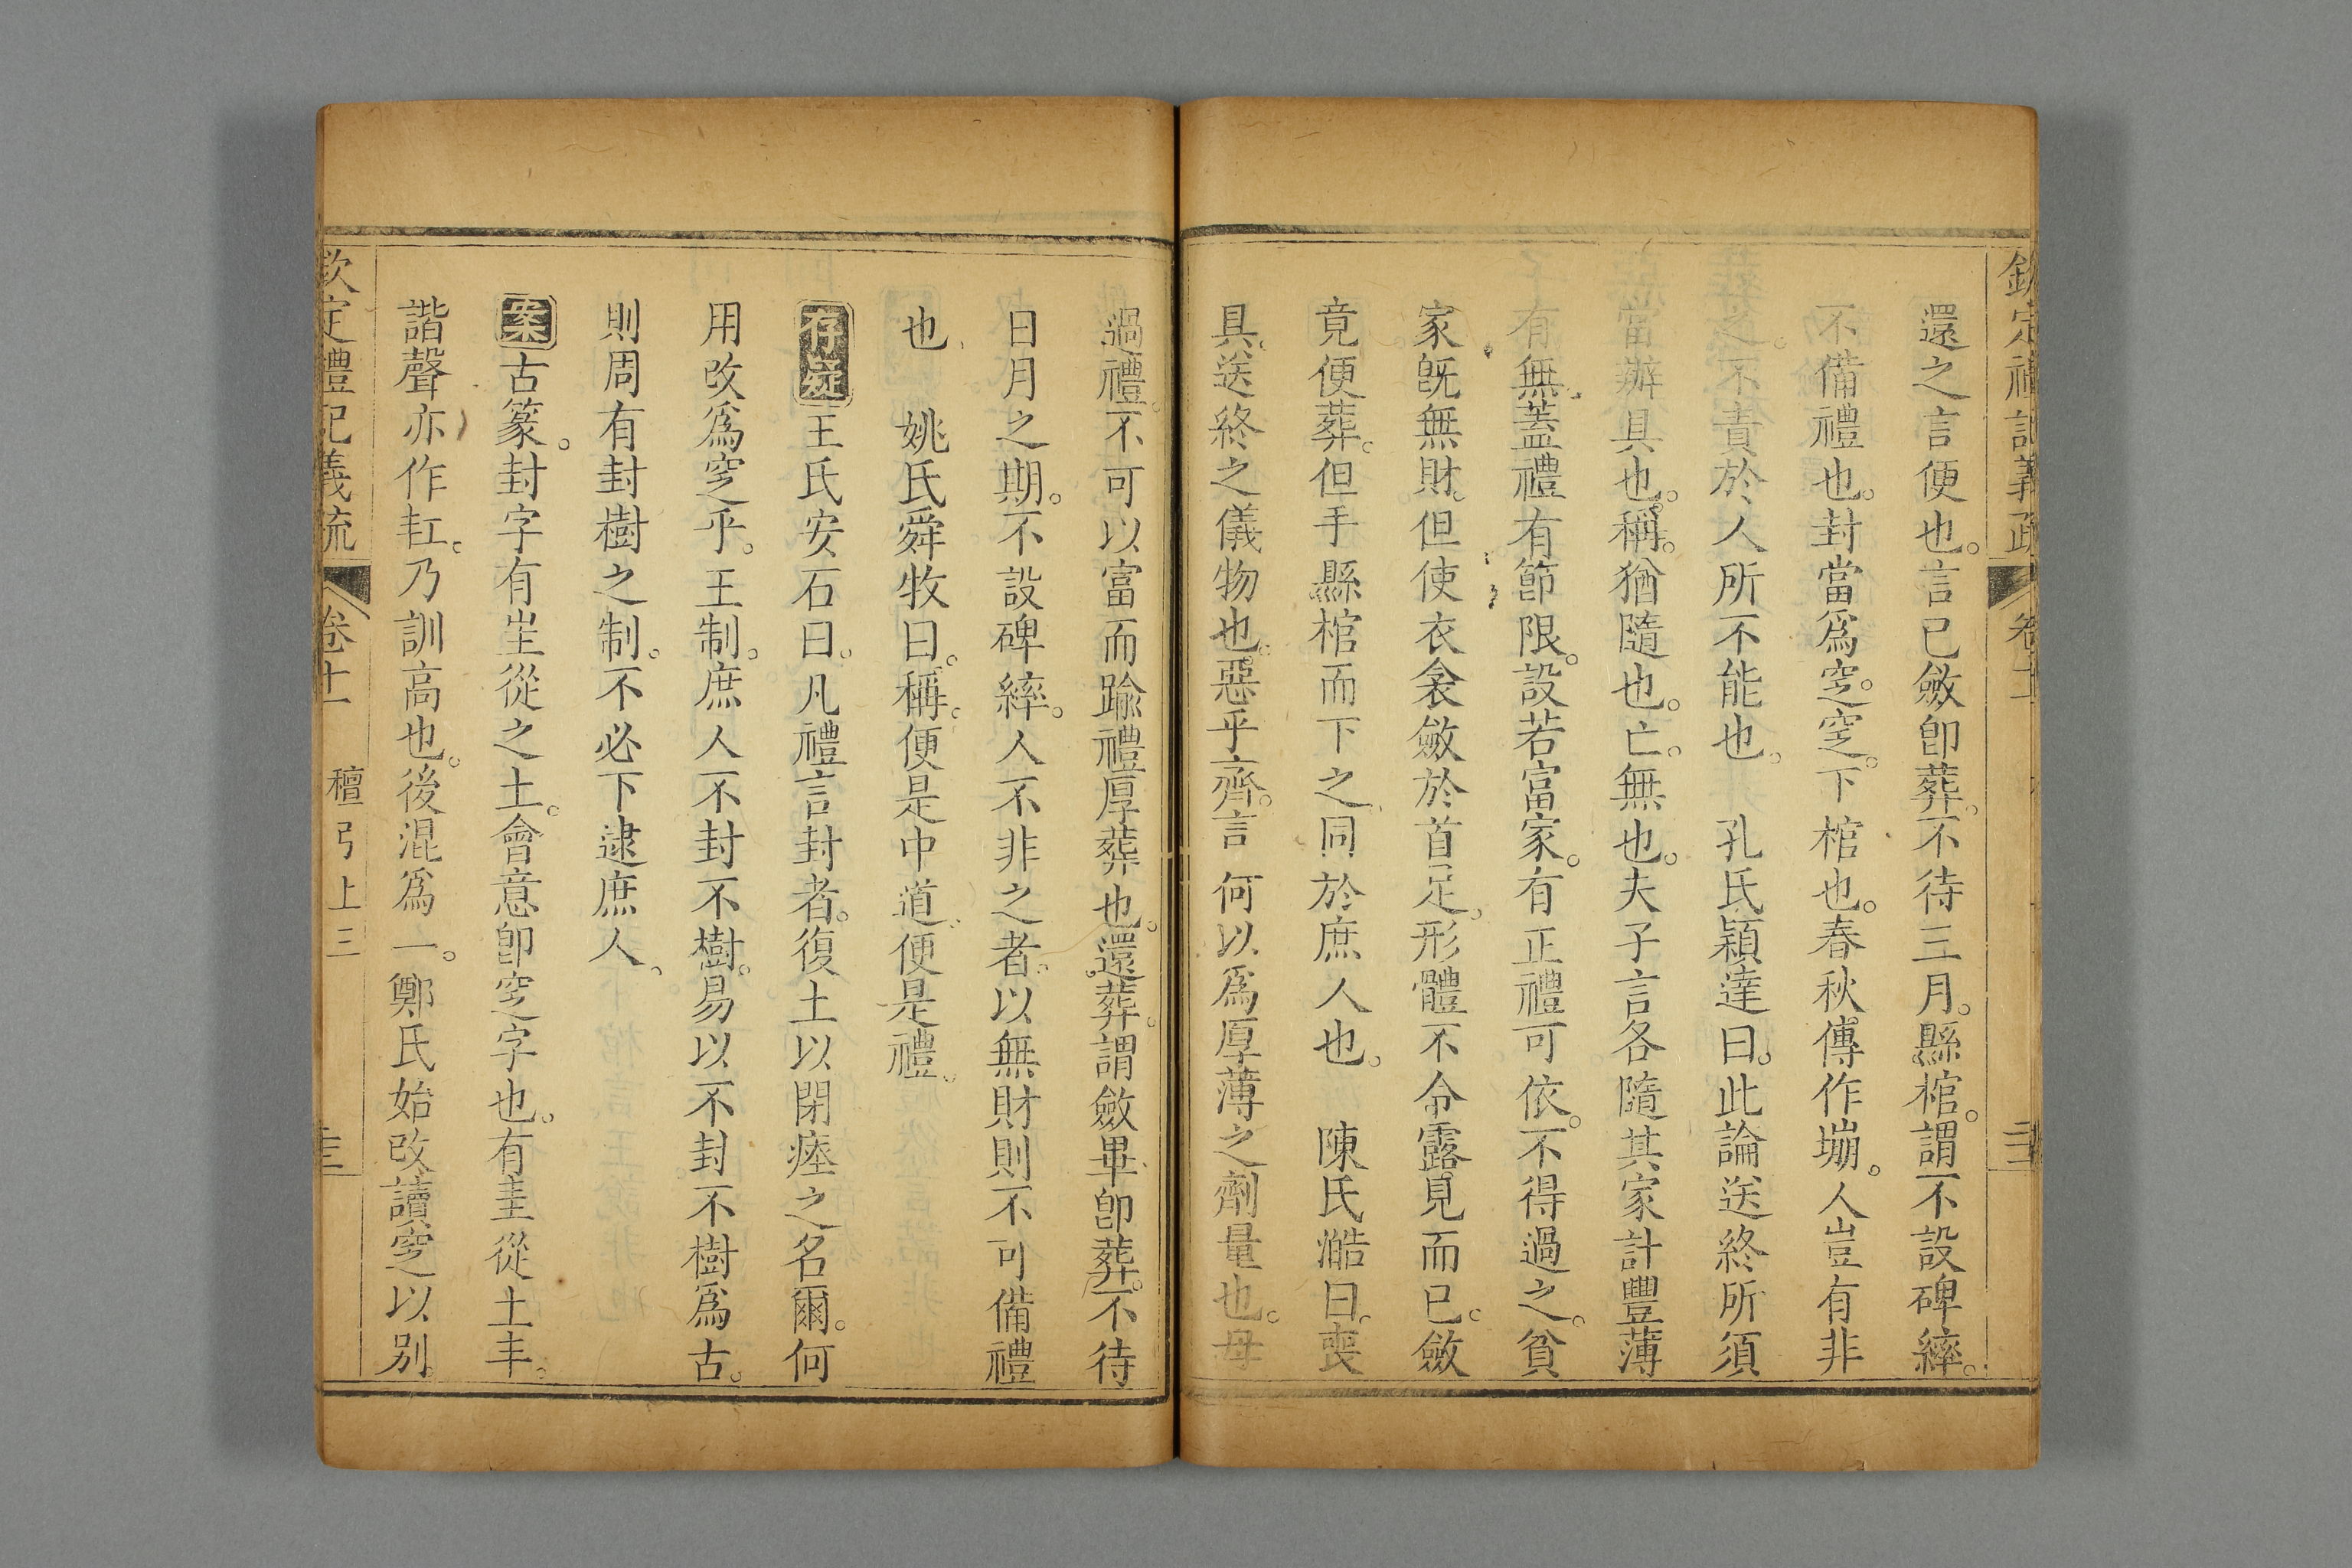 欽定禮記義疏 卷十一
還之言便也。言已斂卽葬。不待三月。縣棺。謂不設碑繂。
不備禮也。封當爲窆。窆。下棺也。春秋傳作塴。人豈有非
之。不責於人所不能也。 孔氏穎達曰。此論送終所須
當辦具也。稱。猶隨也。亡。無也。夫子言各隨其家計豐薄
有無。蓋禮有節限。設若富家。有正禮可依。不得過之。貧
家旣無財。但使衣衾斂於首足。形體不令露見而已。斂
竟便葬。但手縣棺而下之。同於庶人也。 陳氏澔曰。喪
具。送終之儀物也。惡乎齊。言何以爲厚薄之劑量也。毋
過禮。不可以富而踰禮厚葬也。還葬。謂斂畢卽葬。不待
日月之期。不設碑繂。人不非之者。以無財則不可備禮
也。 姚氏舜牧曰。稱。便是中道。便是禮。
存疑 王氏安石曰。凡禮言封者。復土以閉瘞之名爾。何
用改爲窆乎。王制。庶人不封不樹。易以不封不樹爲古。
則周有封樹之制。不必下逮庶人。
案 古篆。封字有㞷從之土。會意卽窆字也。有𡉚從土丰。
諧聲亦作𡉘。乃訓高也。後混爲一。鄭氏始改讀窆以別。
欽定禮記義疏 卷十一 檀弓上三